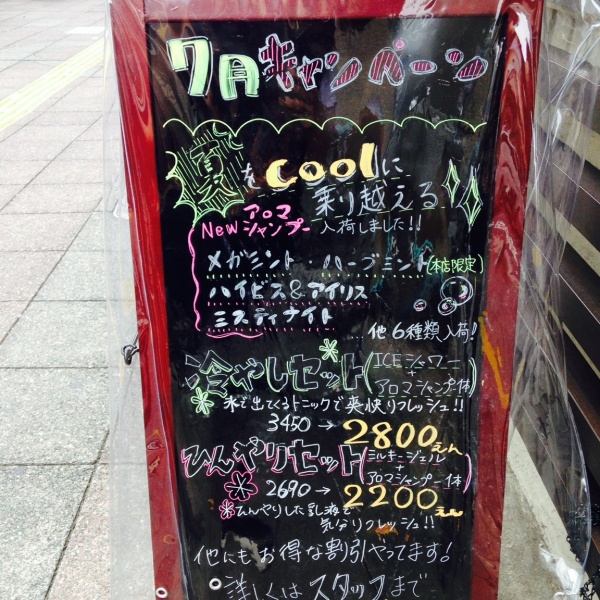 7月キャンペーン
夏をcoolに
乗り越える
New アロマシャンプー 入荷しました!!
メガミント・ハーブミント(本店限定)
ハイビス&アイリス
ミスティナイト
...他6種類入荷!
冷やしセット(ICEシャワー+アロマシャンプー体)
氷で出てくるトニックで爽快リフレッシュ!!
3450→2800えん
ひんやりセット(ミルキージェル+アロマシャンプー体)
2690→2200えん
※ひんやりした乳液で
気分リフレッシュ!!
他にもお得な割引やってます!
詳しくはスタッフまで